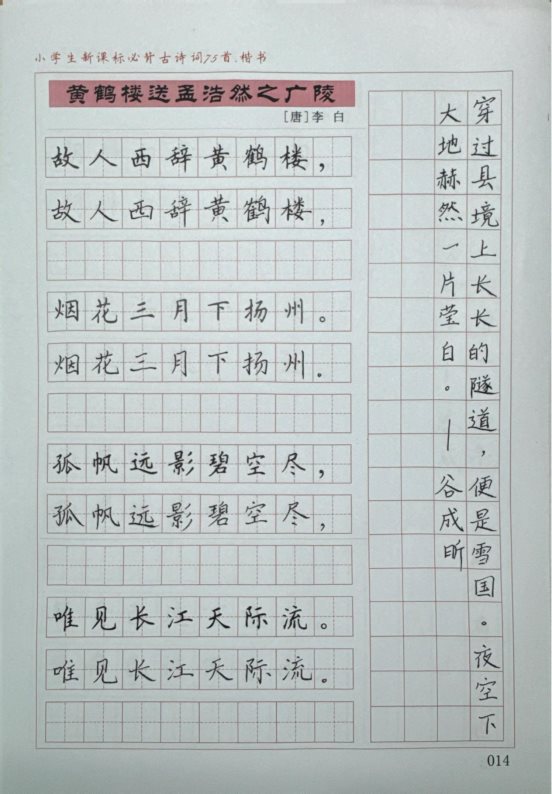 小学生新课标必背古诗词75首.楷书
黄鹤楼送孟浩然之广陵
[唐]李 白
故人西辞黄鹤楼，
故人西辞黄鹤楼，
烟花三月下扬州。
烟花三月下扬州.
孤帆远影碧空尽，
孤帆远影碧空尽，
唯见长江天际流。
唯见长江天际流.
穿过县境上长长的隧道，便是雪国。夜空下
大地赫然一片莹白。—谷成昕
014